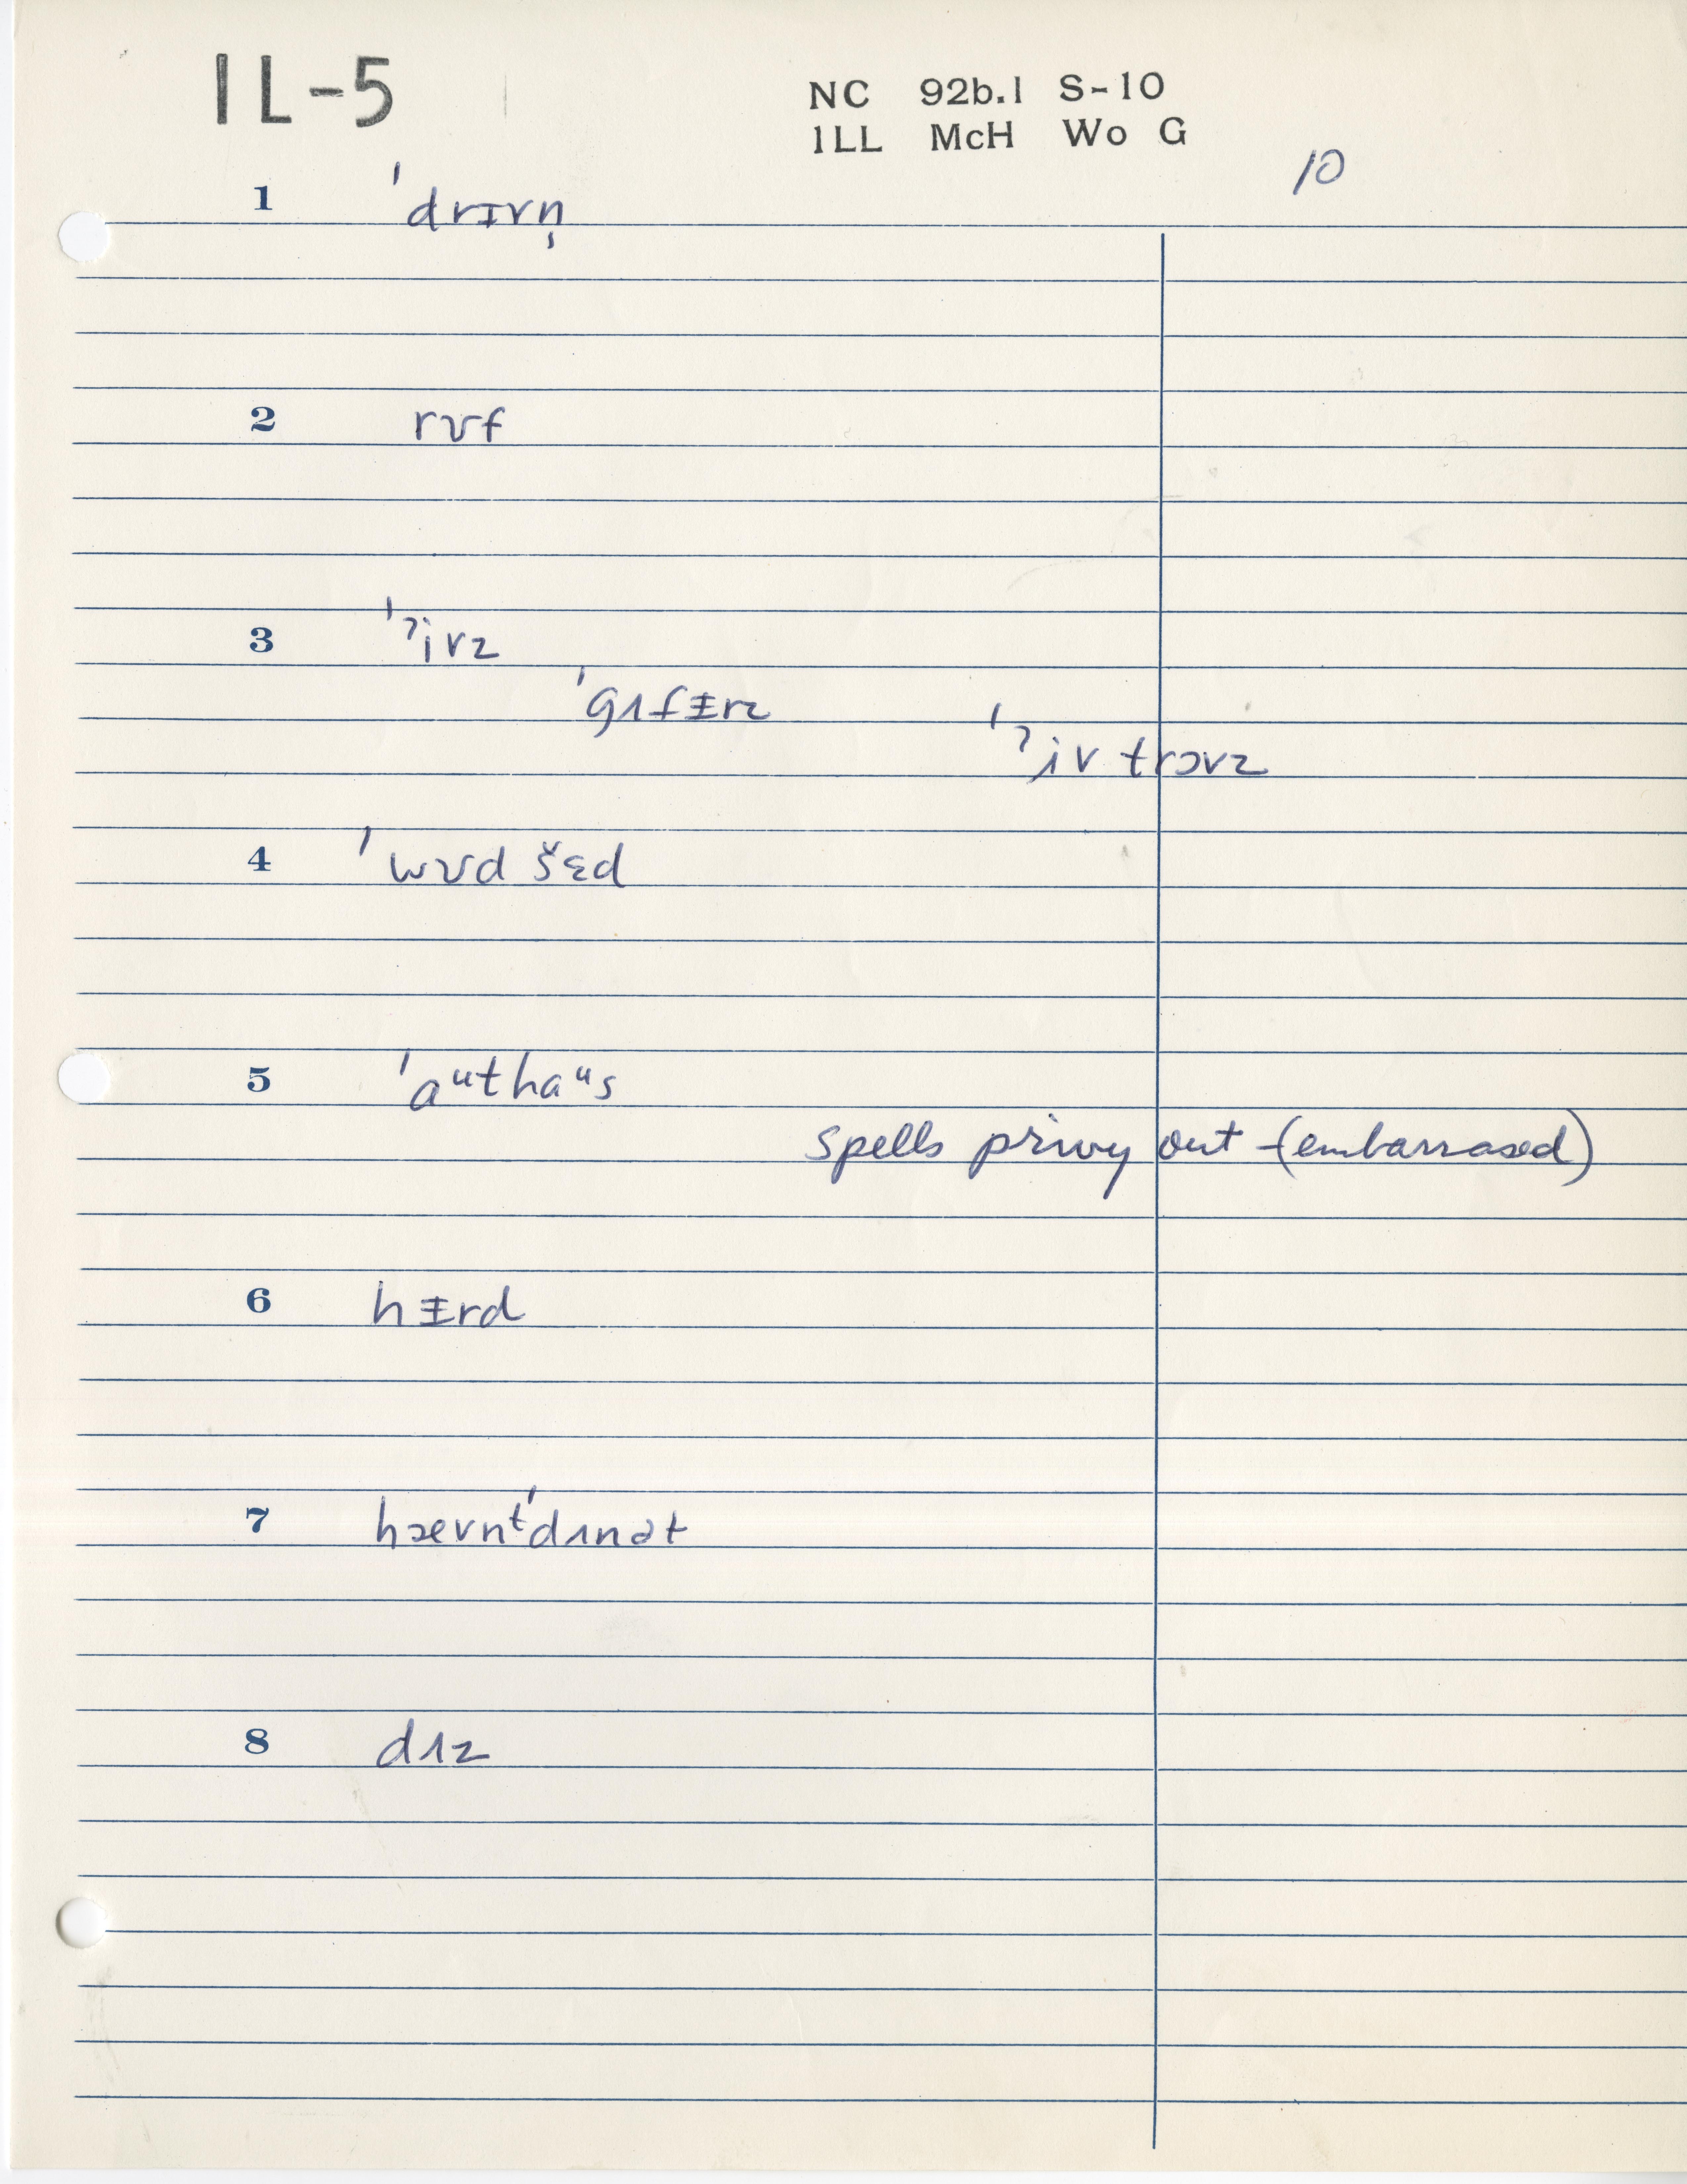 IL-5
NC 92b.1 S-10
ILL McH Wo G
10
1 ˈdrɪvn̩
2 rʊf
3 ˈʔivz
ˈgʌfɨrz
ˈʔiv trɔvz
4 ˈwʊd šɛd
5 ˈaᵘthaᵘs
spells privy out - (embarrased)
6 hɨrd
7 hævnᵗˈdʌnət
8 dʌz